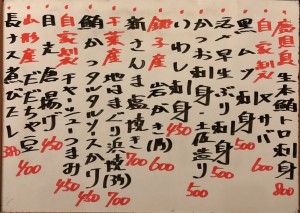 鹿児島産生本鮪トロ刺身 800
自家製〆サバ 600
黒ムツ刺身 500
活〆早生ぶり刺身 500
かつお刺身土佐造り 500
いわし刺身 450
銚子産岩がき(1ヶ) 600
新さんま塩焼 400
千葉産地はまぐり浜焼(3ヶ) 700
鮪かつタルタルソースがけ 450
自家製チャーシューつまみ 450
目光唐揚げ 450
山形産だだちゃ豆 400
長ナス煮びたし 380